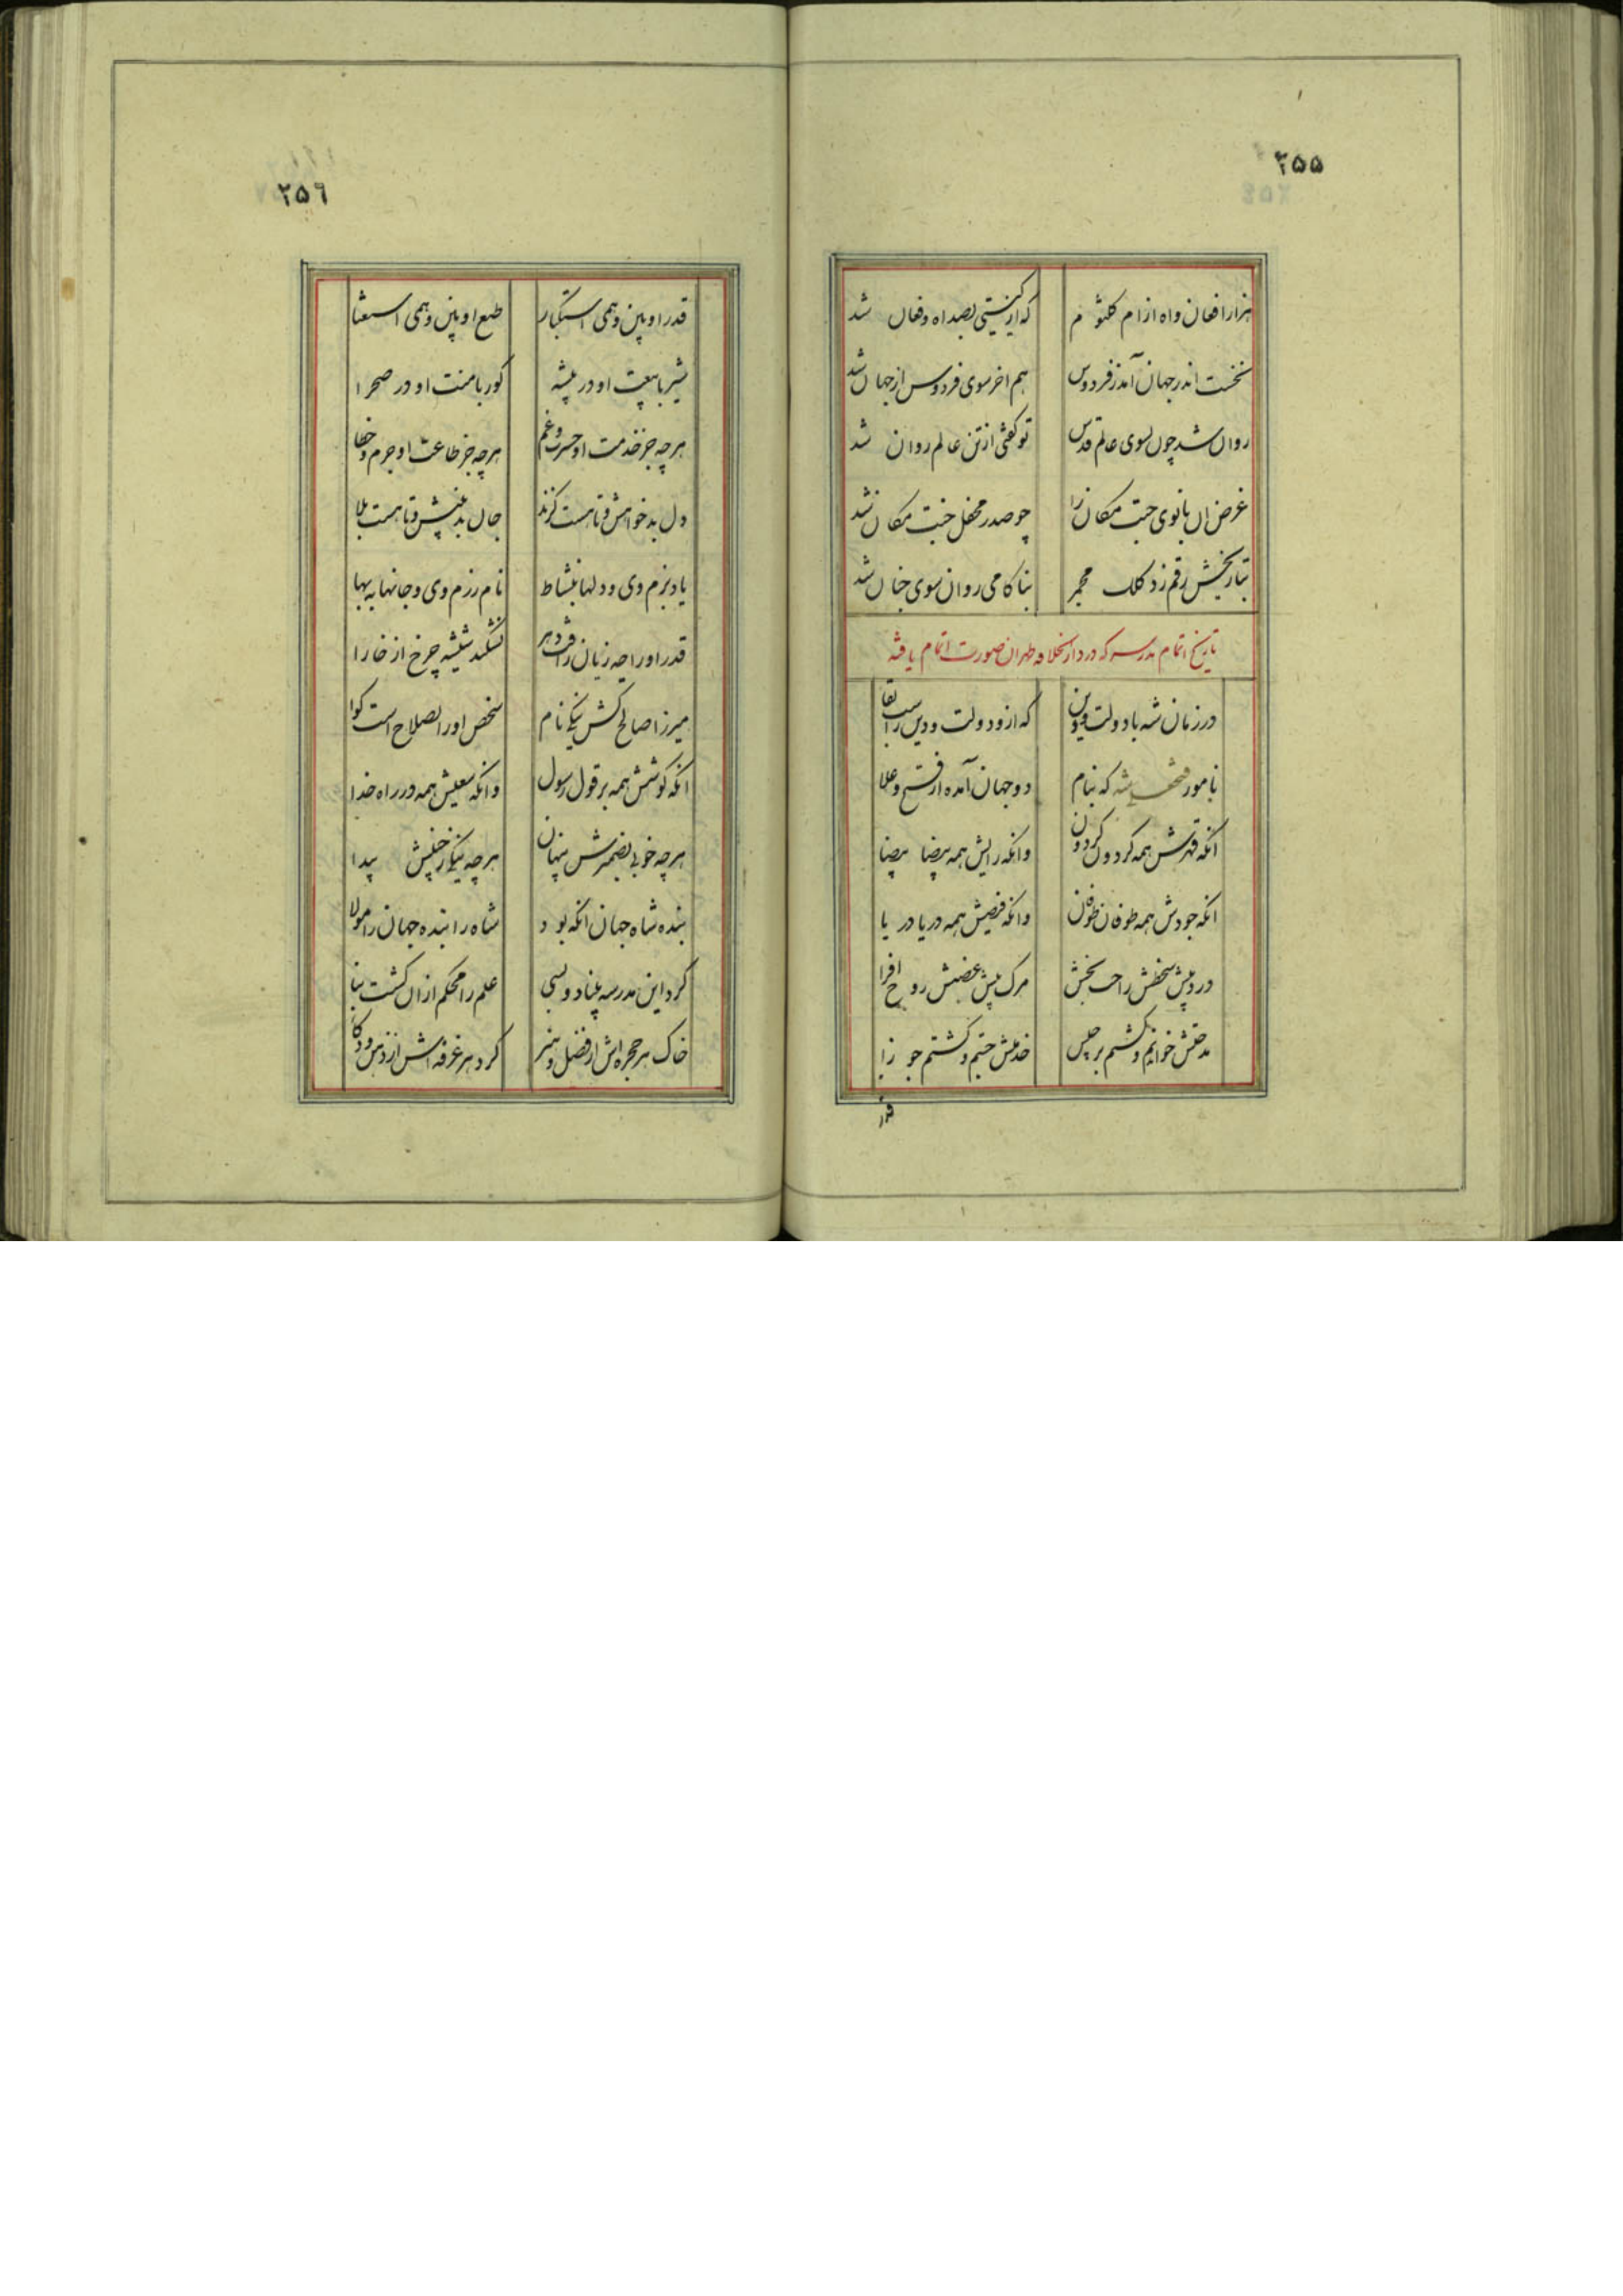 ۲۵۵
هزار افغان واه از ام کلثوم
که از گیتی بصد اه وفغان شد
نخست اندر جهان آمد ز فردوس
هم اخر سوی فردوس از جهان شد
روان شد چون بسوی عالم قدس
تو کفتی از تن عالم روان شد
غرض ان بانوی جنت مکان را
چو صدر محفل جنت مکان شد
بتاریخش رقم زد کلک مجمر
بناکامی روان سوی جنان شد
تاریخ اتمام مدرسه که در دارالخلافه طهران صورت اتمام یافته
در زمان شه با دولت ودین
که ازو دولت ودین راست بقا
نامور فتحعلیشه که بنام
دو جهان آمده از فتح وعلا
انکه قهرش همه کردون کردون
وانکه رایش همه بیضا بیضا
انکه جودش همه طوفان طوفان
وانکه فیضش همه دریا دریا
درد پیش سخطش راحت بخش
مرک پیش غضبش روح افزا
مدحتش خوانم وکشتم برجیس
خدمتش جستم وکشتم جوزا
قدر
۲۵۶
قدر او بین وهمی استکبار
طبع او بین وهمی استغنا
شیر با هیبت او در بیشه
کور با منت او در صحرا
هرچه جز خدمت او حسرت وغم
هرچه جز طاعت او جرم وخطا
دل بدخواهش وتا هست کزند
جان بدبینش وتا هست بلا
یاد بزم وی ودلها بنشاط
نام رزم وی وجانها به بها
قدر او را چه زیان ز افت دهر
نشکند شیشه چرخ از خارا
میرزا صالح کش نیکی نام
شخص او را بصلاح است کوا
انکه کوشش همه بر قول رسول
وانکه سعیش همه در راه خدا
هرچه خوبی بضمیرش پنهان
هرچه نیکی ز جبینش پیدا
بنده شاه جهان انکه بود
شاه را بنده جهان را مولا
کرد این مدرسه بنیاد وبسی
علم را محکم از ان کشت بنا
خاک هر حجره اش از فضل وهنر
کرد هر غرفه اش از ذهن وذکا